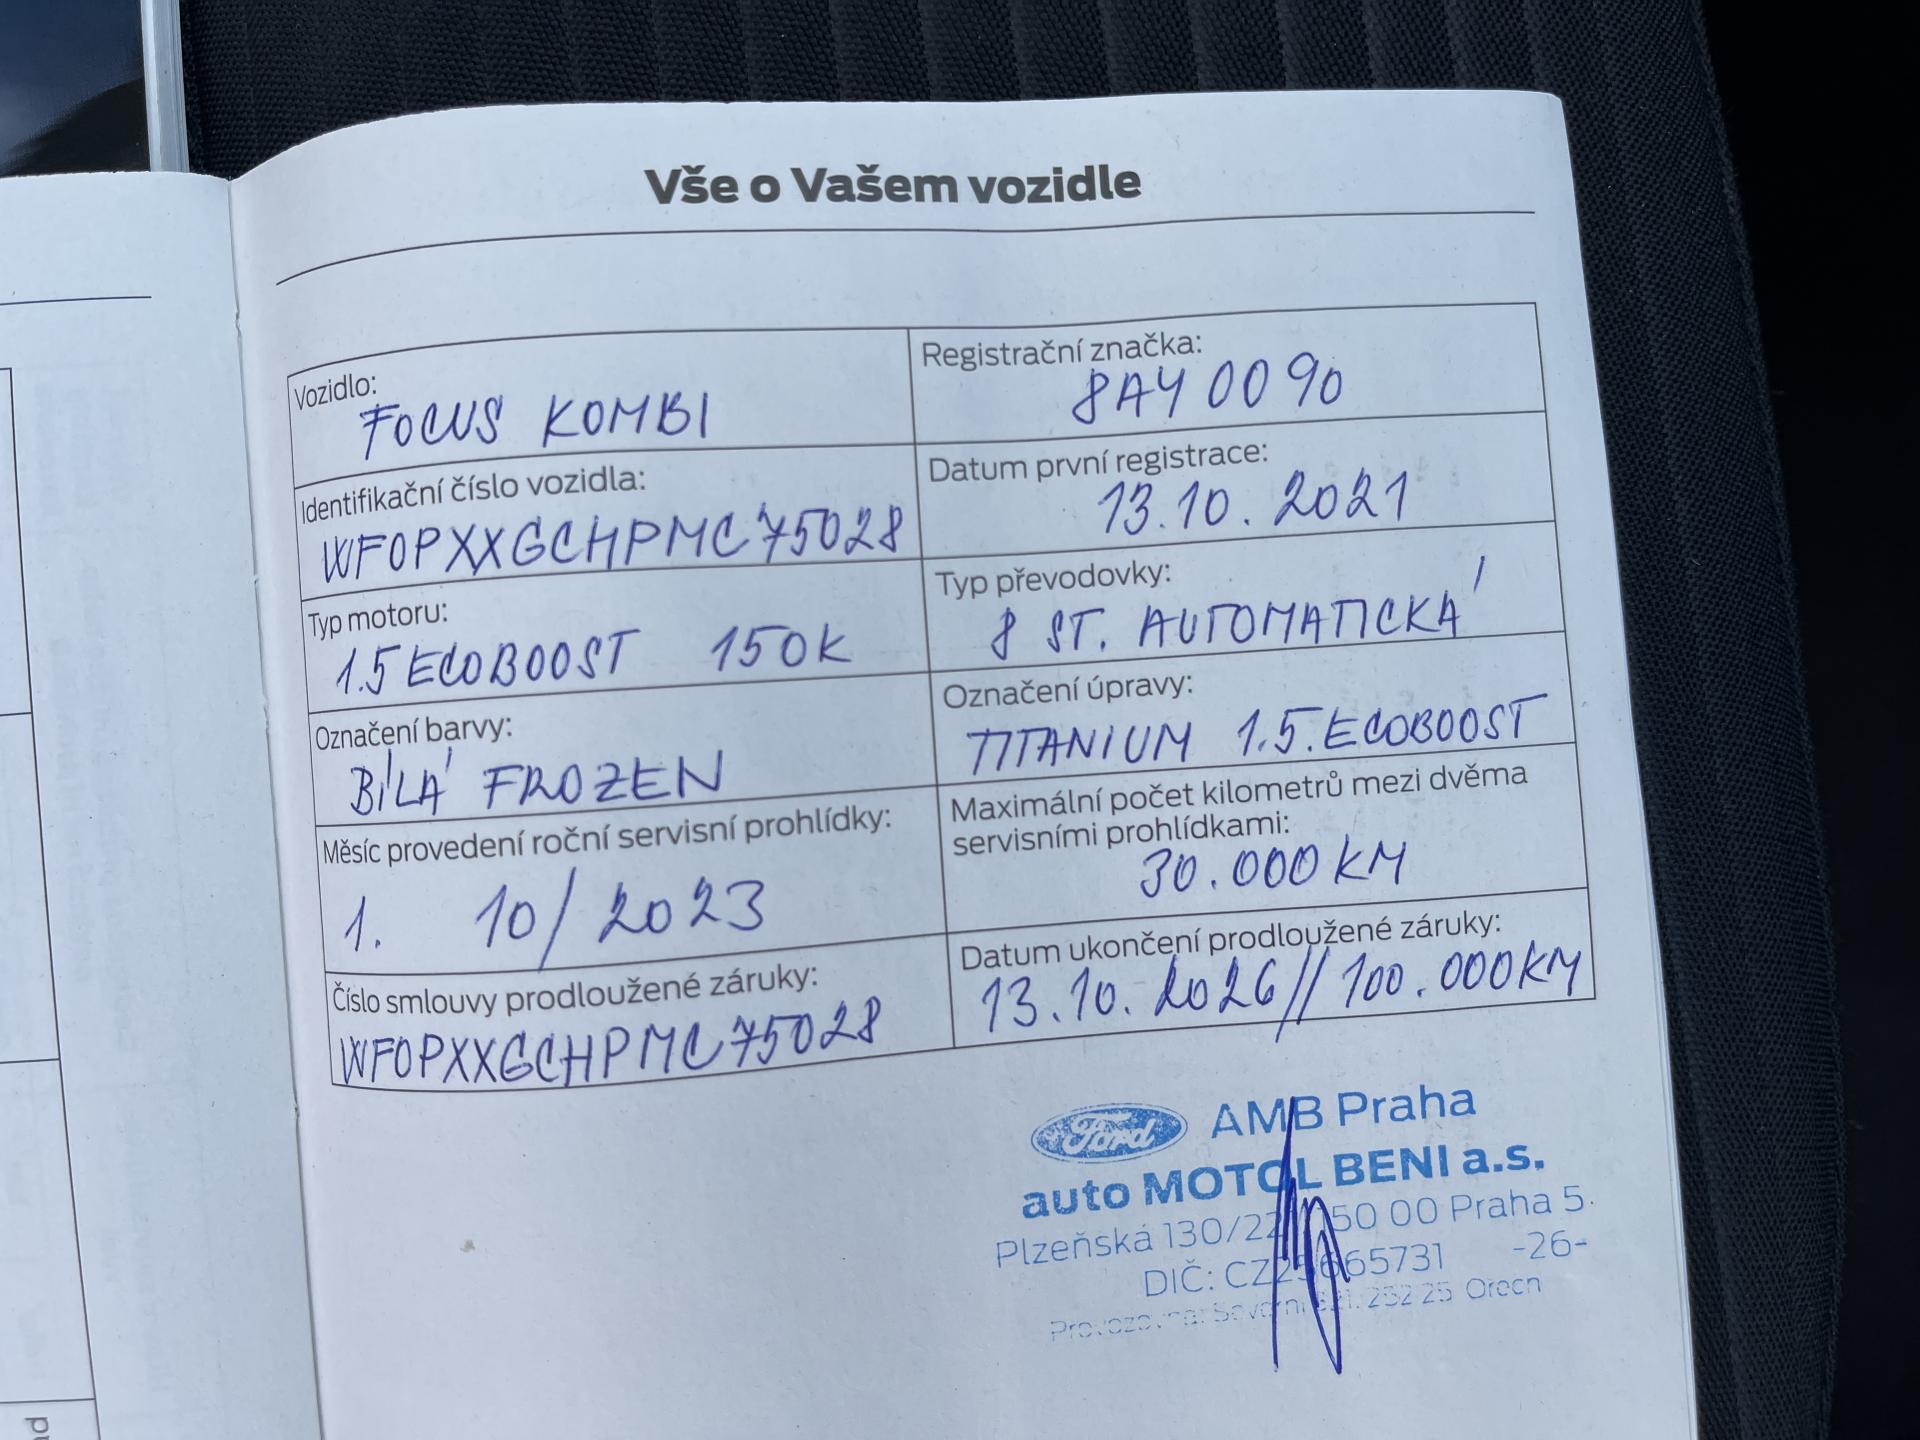 Vše o Vašem vozidle
Vozidlo:
FOCUS KOMBI
Registrační značka:
8AY 0090
Identifikační číslo vozidla:
WF0PXXGCHPMC75028
Datum první registrace:
13.10.2021
Typ motoru:
1.5 ECOBOOST 150K
Typ převodovky:
8 ST. AUTOMATICKÁ
Označení barvy:
BÍLÁ FROZEN
Označení úpravy:
TITANIUM 1.5.ECOBOOST
Měsíc provedení roční servisní prohlídky:
1. 10/2023
Maximální počet kilometrů mezi dvěma
servisními prohlídkami:
30.000 KM
Číslo smlouvy prodloužené záruky:
WF0PXXGCHPMC75028
Datum ukončení prodloužené záruky:
13.10.2026//100.000KM
Ford AMB Praha
auto MOTOL BENI a.s.
Plzeňská 130/22 150 00 Praha 5
DIČ: -26-
252 25 Orech